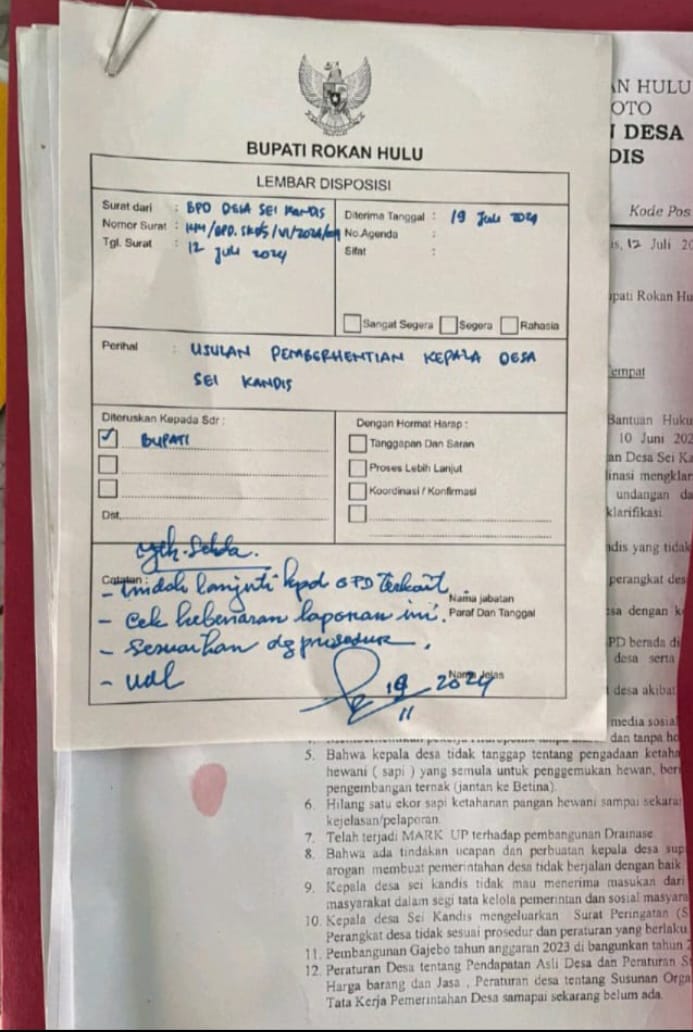 BUPATI ROKAN HULU
LEMBAR DISPOSISI
Surat dari : BPD DESA SEI KANDIS
Nomor Surat :
Tgl. Surat : 12 Juli 2024
Diterima Tanggal : 19 Juli 2024
No.Agenda :
Sifat :
Sangat Segera Segera Rahasia
Perihal : USULAN PEMBERHENTIAN KEPALA DESA
SEI KANDIS
Diteruskan Kepada Sdr :
BUPATI
Dst.
Dengan Hormat Harap :
Tanggapan Dan Saran
Proses Lebih Lanjut
Koordinasi / Konfirmasi
Yth. Sekda.
Catatan :
- Tindak lanjuti kpd OPD Terkait.
- Cek kebenaran laporan ini.
- Sesuaikan dg prosedur.
- Udl
Nama jabatan
Paraf Dan Tanggal
Nama Jelas
2024
AN HULU
OTO
N DESA
DIS
Kode Pos
is, 12 Juli 20
upati Rokan Hu
empat
Bantuan Huku
10 Juni 202
an Desa Sei Ka
dinasi mengklar
undangan da
klarifikasi.
ndis yang tidak
perangkat des
sa dengan ke
PD berada di
desa serta
desa akibat
media sosial
dan tanpa ho
5. Bahwa kepala desa tidak tanggap tentang pengadaan ketaha
hewani ( sapi ) yang semula untuk penggemukan hewan, beri
pengembangan ternak (jantan ke Betina).
6. Hilang satu ekor sapi ketahanan pangan hewani sampai sekaran
kejelasan/pelaporan.
7. Telah terjadi MARK UP terhadap pembangunan Drainase
8. Bahwa ada tindakan ucapan dan perbuatan kepala desa sup
arogan membuat pemerintahan desa tidak berjalan dengan baik
9. Kepala desa sei kandis tidak mau menerima masukan dari
masyarakat dalam segi tata kelola pemerintan dan sosial masyara
10. Kepala desa Sei Kandis mengeluarkan Surat Peringatan (S
Perangkat desa tidak sesuai prosedur dan peraturan yang berlaku
11. Pembangunan Gajebo tahun anggaran 2023 di bangunkan tahun 2
12. Peraturan Desa tentang Pendapatan Asli Desa dan Peraturan St
Harga barang dan Jasa , Peraturan desa tentang Susunan Orga
Tata Kerja Pemerintahan Desa samapai sekarang belum ada.